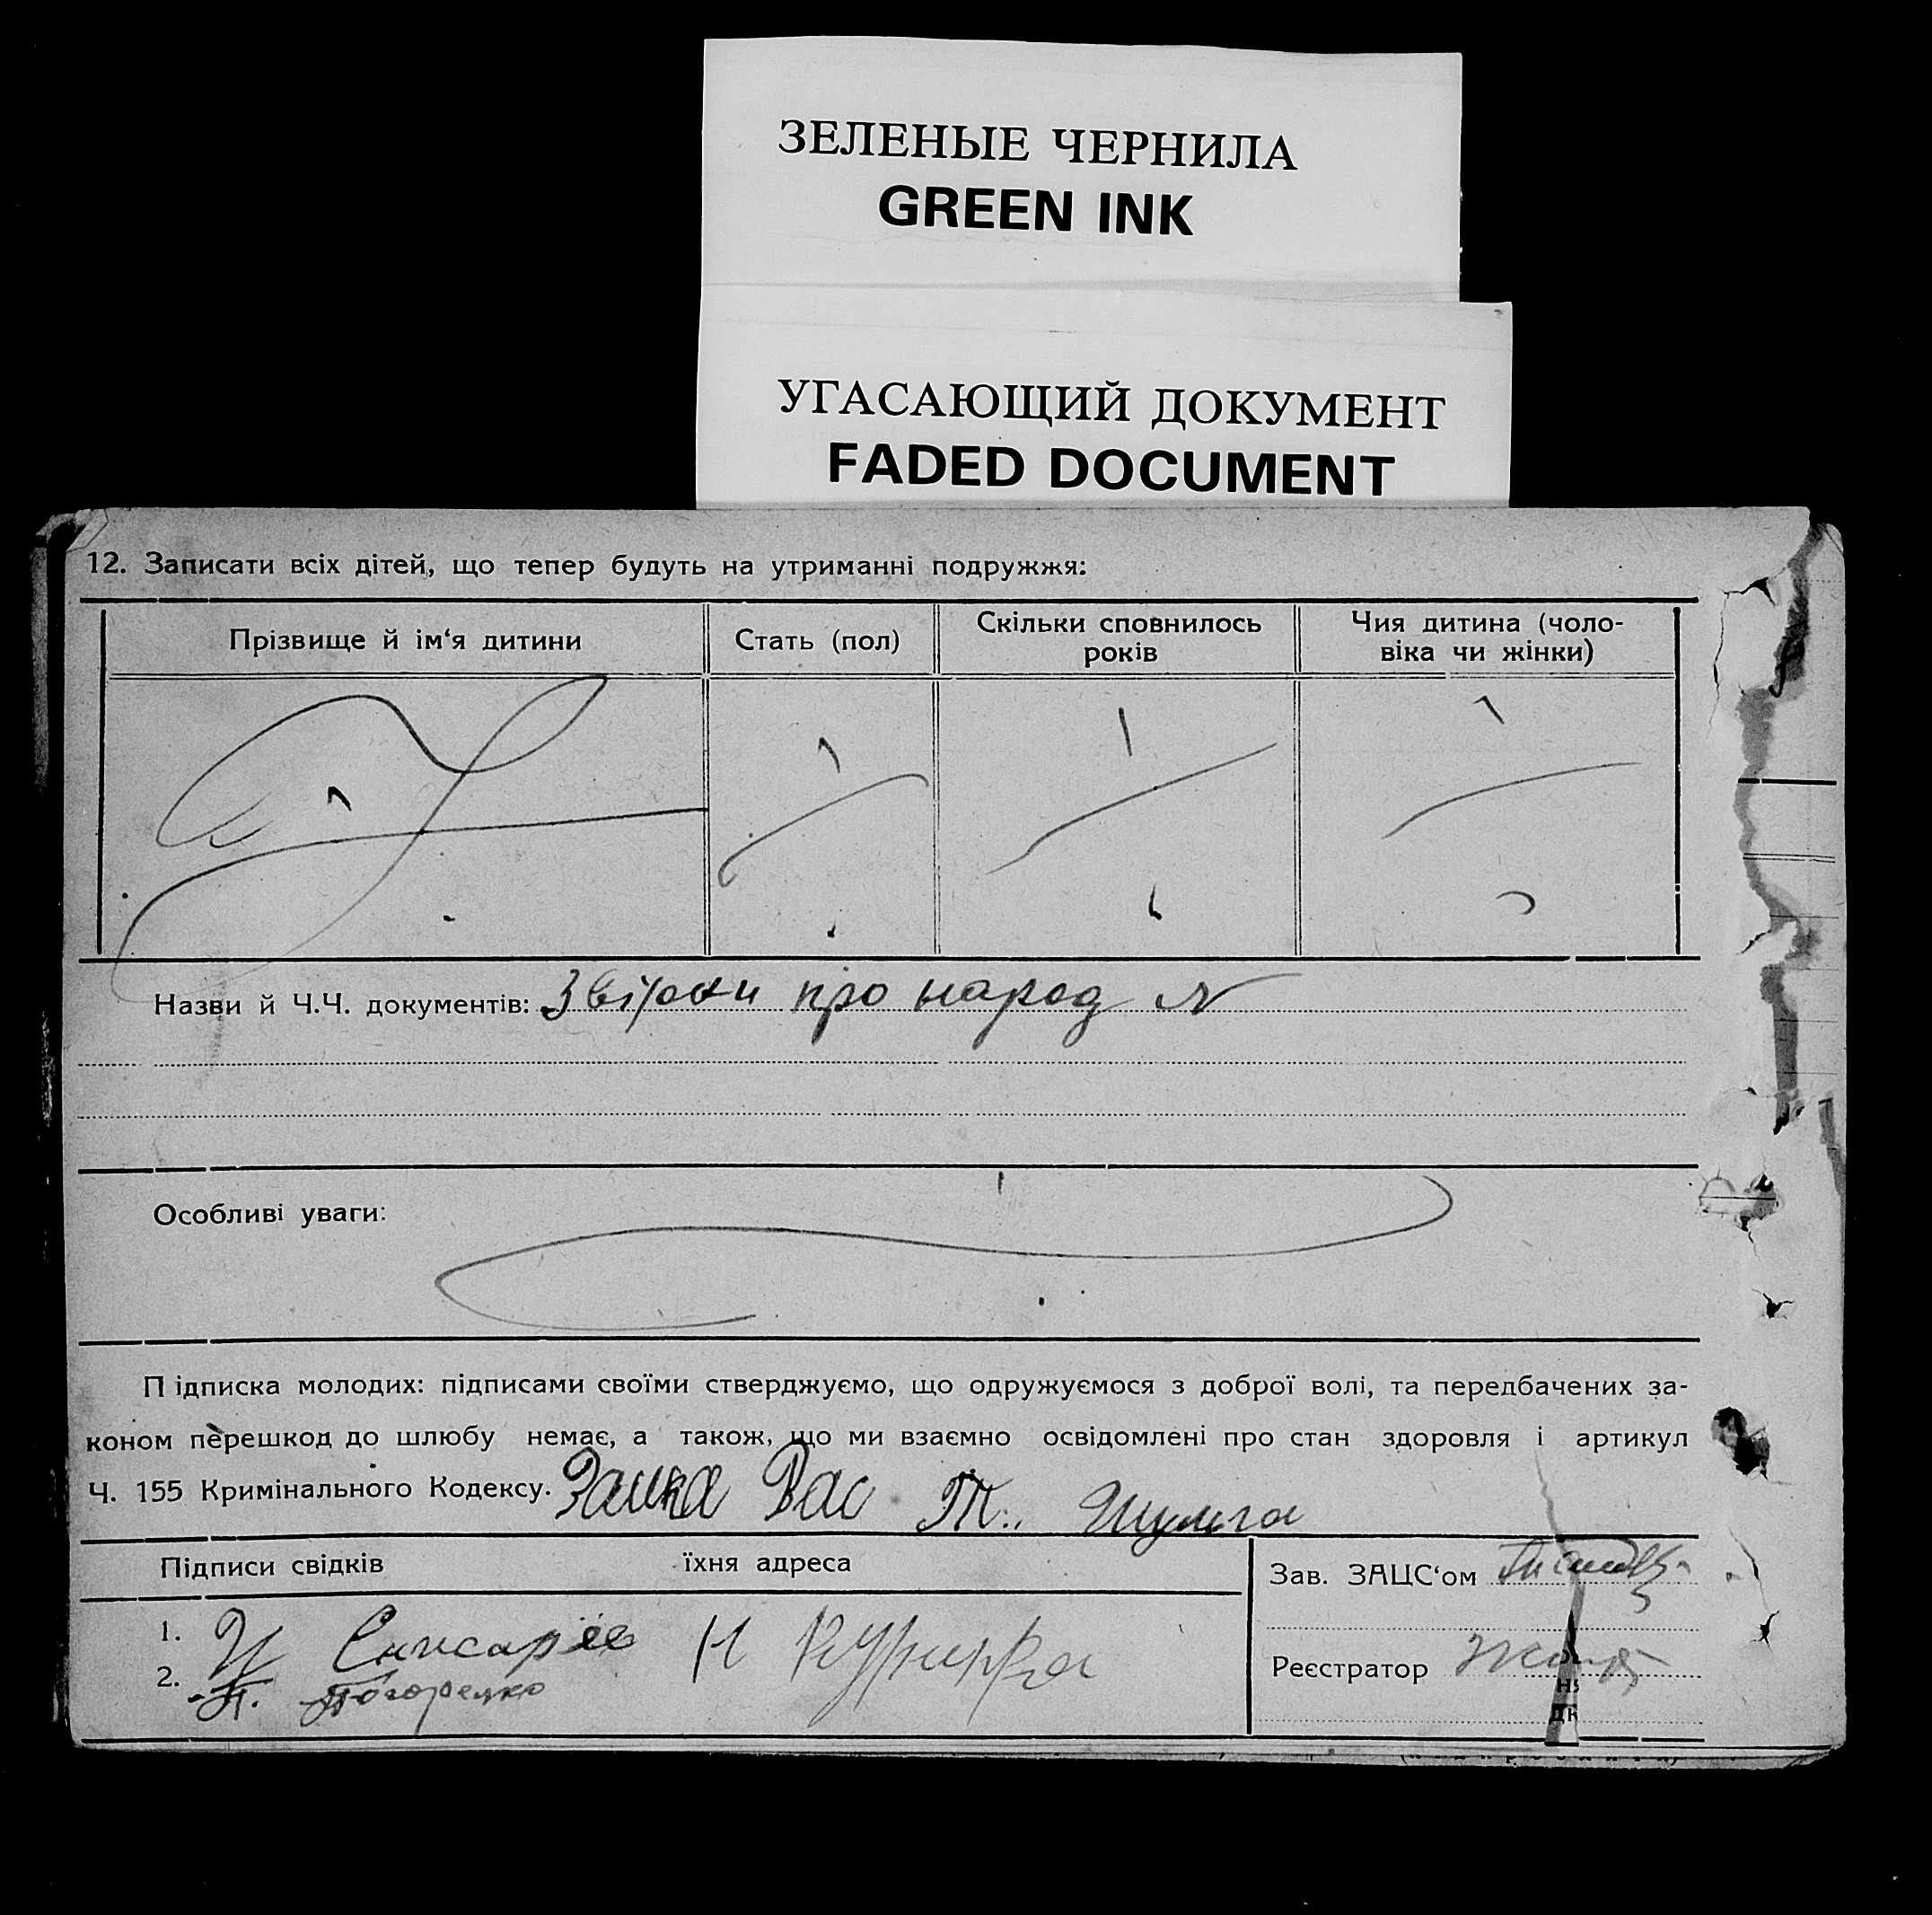 ЗЕЛЕНЫЕ ЧЕРНИЛА
GREEN INK
УГАСАЮЩИЙ ДОКУМЕНТ
FADED DOCUMENT
12. Записати всіх дітей, що тепер будуть на утриманні подружжя:
Прізвище й ім‘я дитини
Стать (пол)
Скільки сповнилось
років
Чия дитина (чоло-
віка чи жінки)
Назви й Ч.Ч. документів: про народ N
Особливі уваги:
П ідписка молодих: підписами своїми стверджуємо, що одружуємося з доброї волі, та передбачених за-
коном перешкод до шлюбу немає, а також, що ми взаємно освідомлені про стан здоровля і артикул
Ч. 155 Кримінального Кодексу. Заика Вас Т. Шульга
Підписи свідків їхня адреса
Зав. ЗАЦС‘ом
1.
2. П. Погорелко
Реєстратор